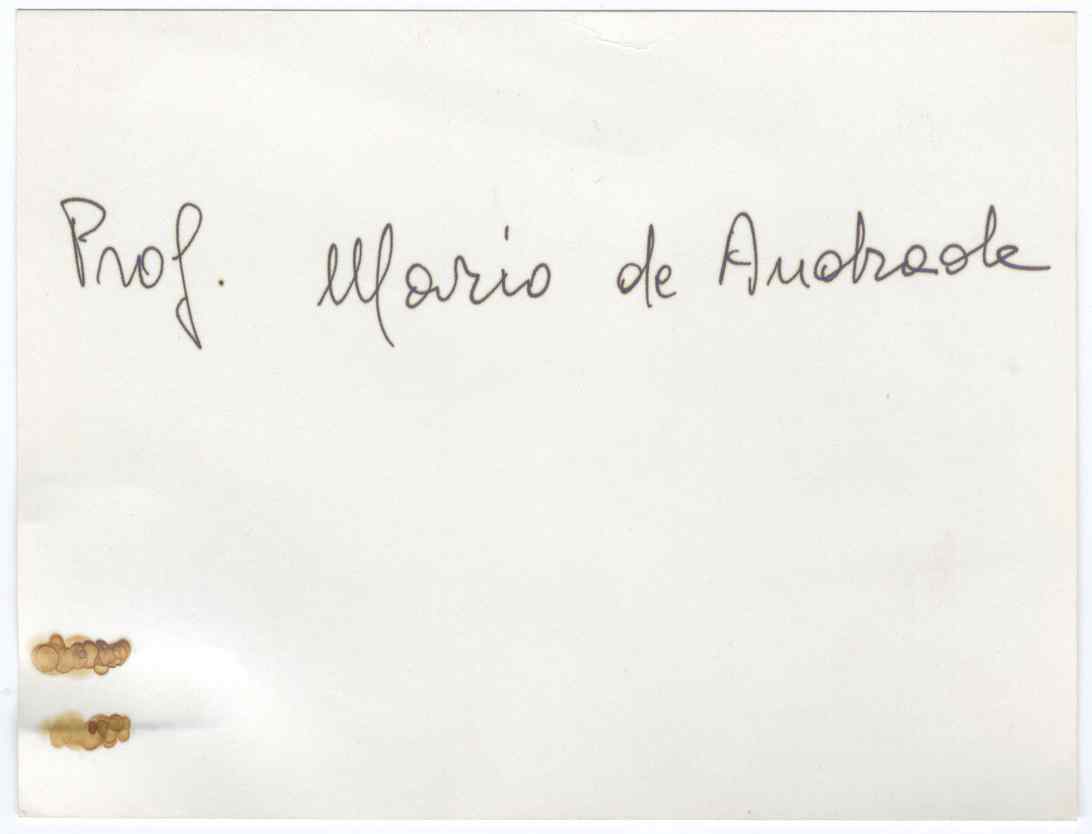 Prof. Mario de Andrade